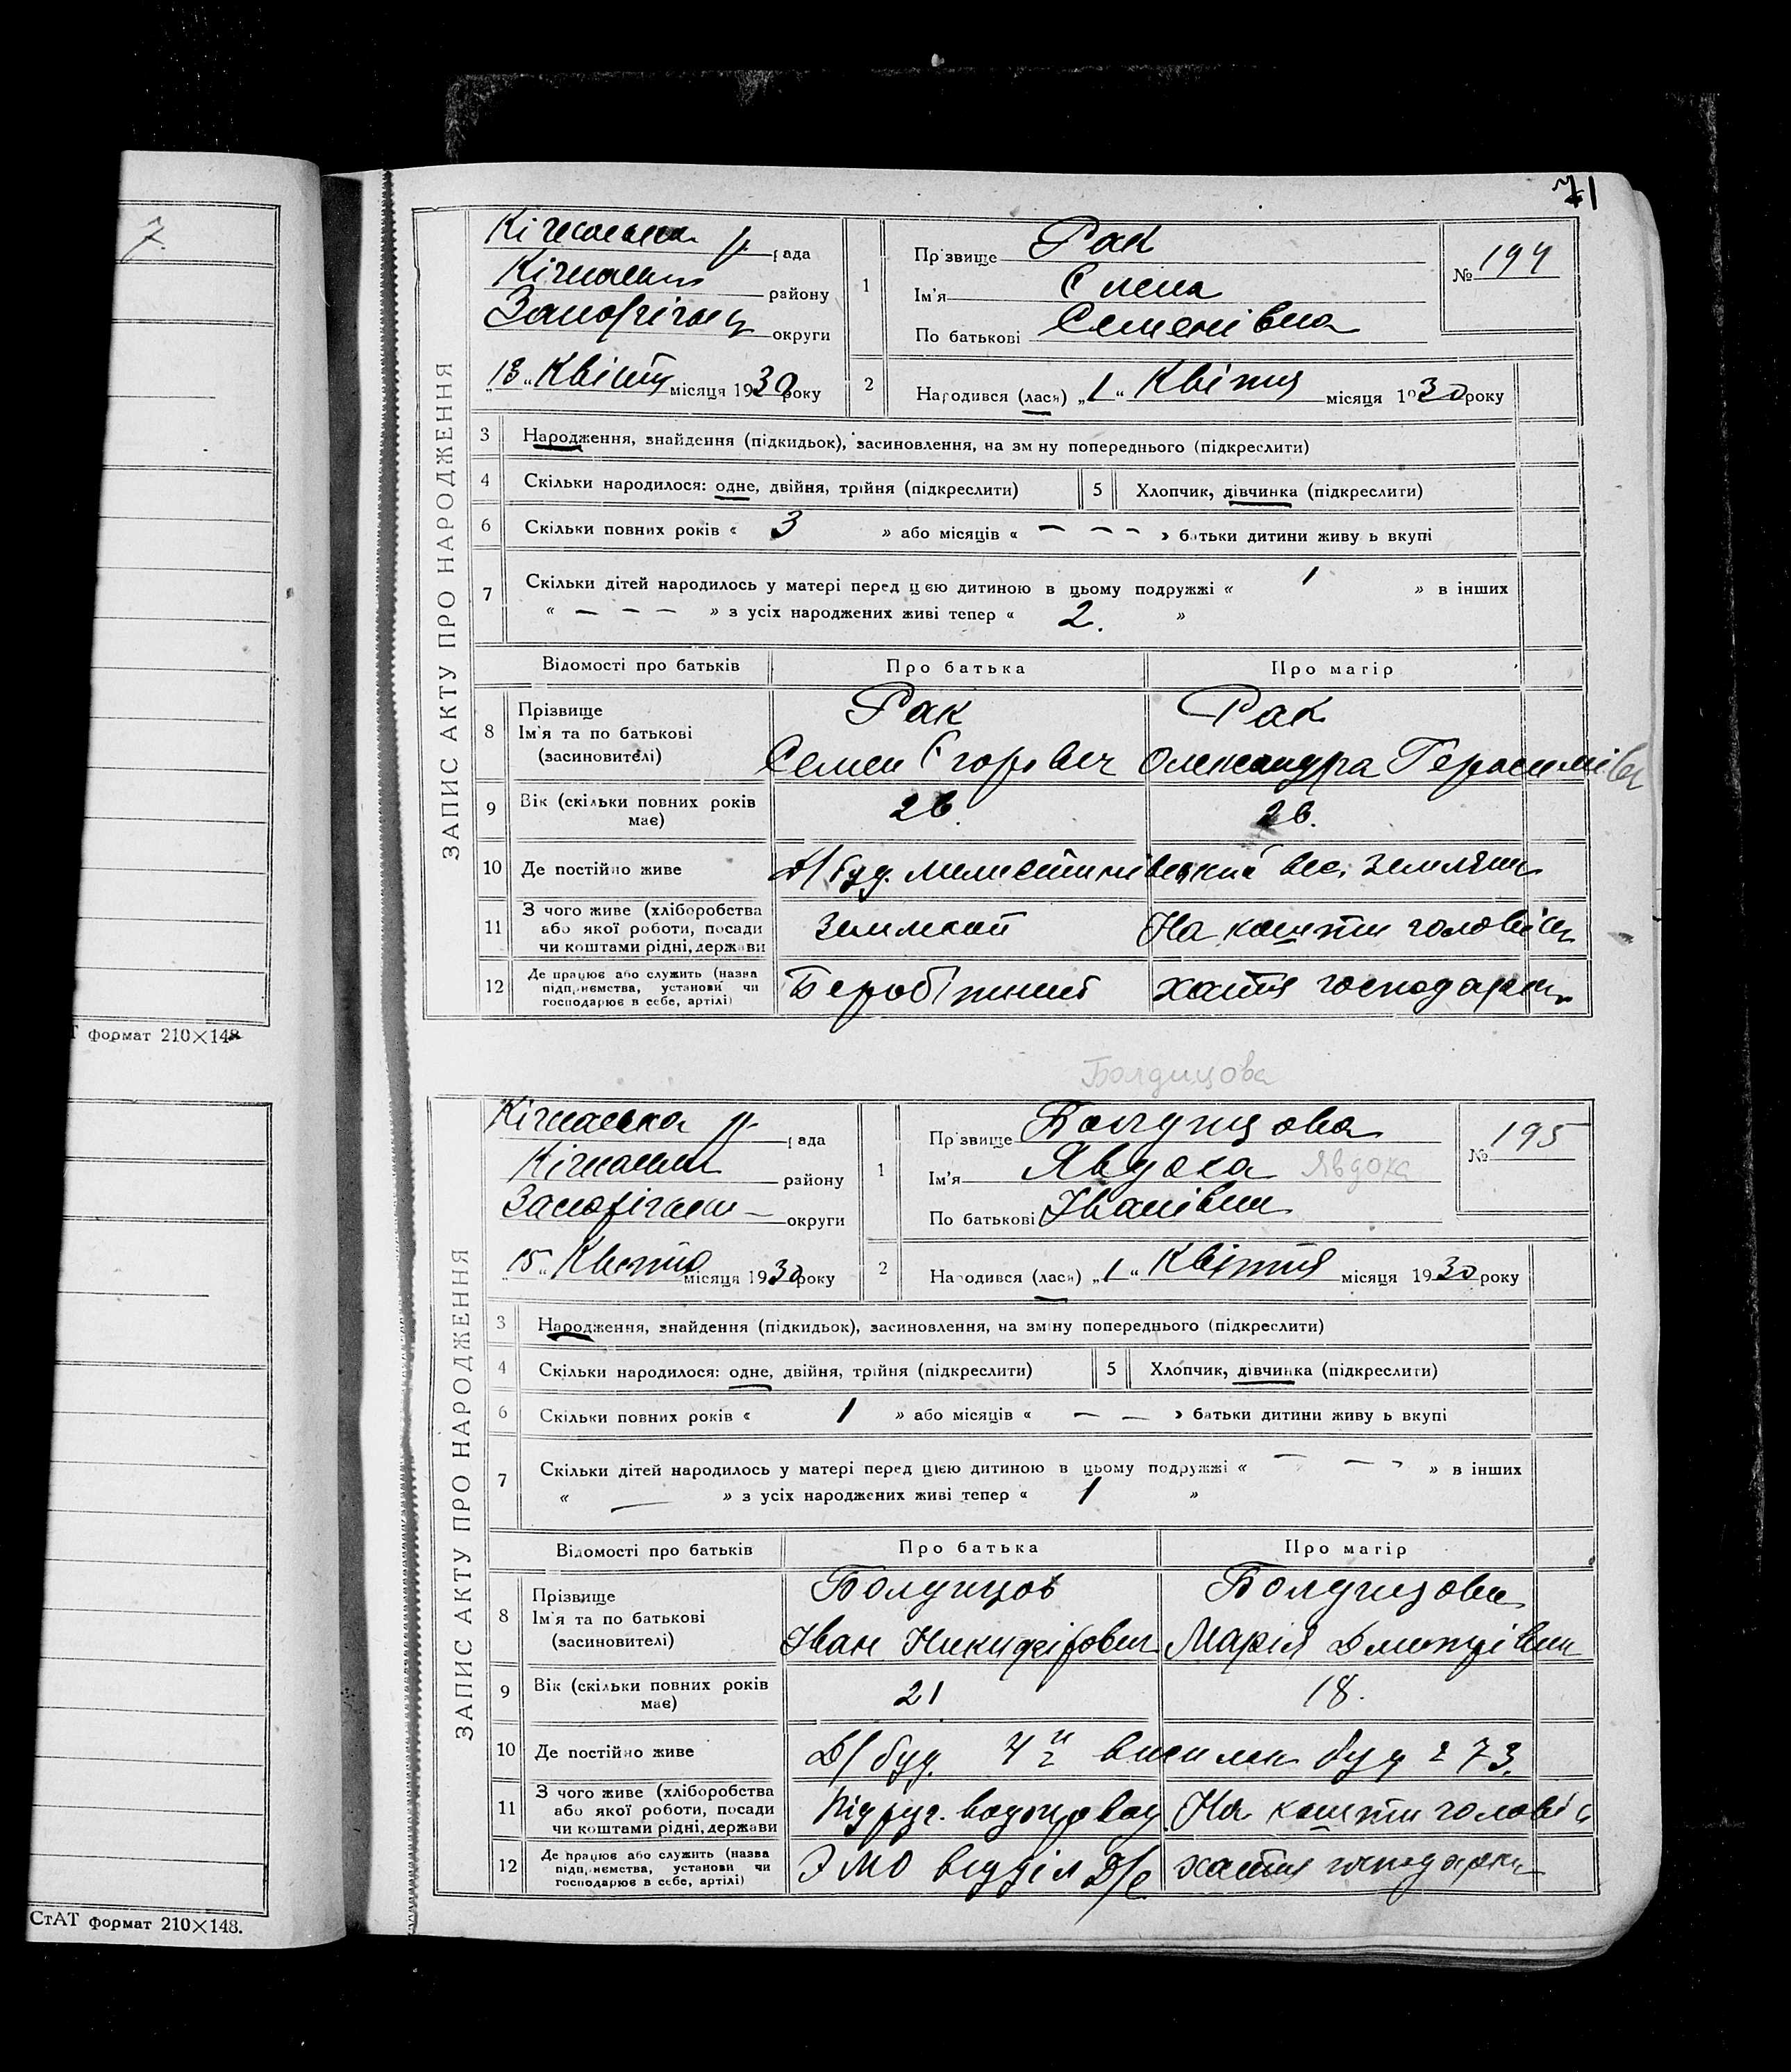 71
7.
Т формат 210×148
СтАТ формат 210×148.
ЗАПИС АКТУ ПРО НАРОДЖЕННЯ
Кічкаська р. рада
району
округи
18 „ Квітня місяця 1930 року
1
Прізвище Рак
Ім'я Єлена
По батькові Семенівна
№ 194
2
Народився (лася) „ 1 “ Квітня місяця 1930 року
3 Народження, знайдення (підкидьок), засиновлення, на зміну попереднього (підкреслити)
4 Скільки народилося: одне, двійня, трійня (підкреслити) 5 Хлопчик, дівчинка (підкреслити)
6 Скільки повних років « 3 » або місяців « – – – » батьки дитини живуть вкупі
7 Скільки дітей народилось у матері перед цією дитиною в цьому подружжі « 1 » в інших
« – – – » з усіх народжених живі тепер « 2. »
Відомості про батьків Про батька Про матір
8 Прізвище
Ім'я та по батькові
(засиновителі)
Рак
Семен Єгорович
Рак
Олександра Герасимівн
9 Вік (скільки повних років
має)
26. 26.
10 Де постійно живе
Д/буд.
11 З чого живе (хліборобства
або якої роботи, посади
чи коштами рідні, держави
землекоп На кошти голови сім
12 Де працює або служить (назва
підприємства, установи чи
господарює в себе, артілі)
хатня господарка
Болдицова
ЗАПИС АКТУ ПРО НАРОДЖЕННЯ
Кічкаська р. рада
району
округи
„ 15 „ Квітня місяця 1930 року
1
Прізвище
Ім'я Явдоха Явдоха
По батькові Іванівна
№ 195
2
Народився (лася) „ 1 “ Квітня місяця 1930 року
3 Народження, знайдення (підкидьок), засиновлення, на зміну попереднього (підкреслити)
4 Скільки народилося: одне, двійня, трійня (підкреслити) 5 Хлопчик, дівчинка (підкреслити)
6 Скільки повних років « 1 » або місяців « – – » батьки дитини живуть вкупі
7 Скільки дітей народилось у матері перед цією дитиною в цьому подружжі « – – – » в інших
« — » з усіх народжених живі тепер « 1 »
Відомості про батьків Про батька Про матір
8 Прізвище
Ім'я та по батькові
(засиновителі)
Іван Никифорович
Марія Дмитрівна
9 Вік (скільки повних років
має)
21 18.
10 Де постійно живе
Д/буд. буд 273.
11 З чого живе (хліборобства
або якої роботи, посади
чи коштами рідні, держави
На кошти голови с
12 Де працює або служить (назва
підприємства, установи чи
господарює в себе, артілі)
відділ Д/б хатня господарка